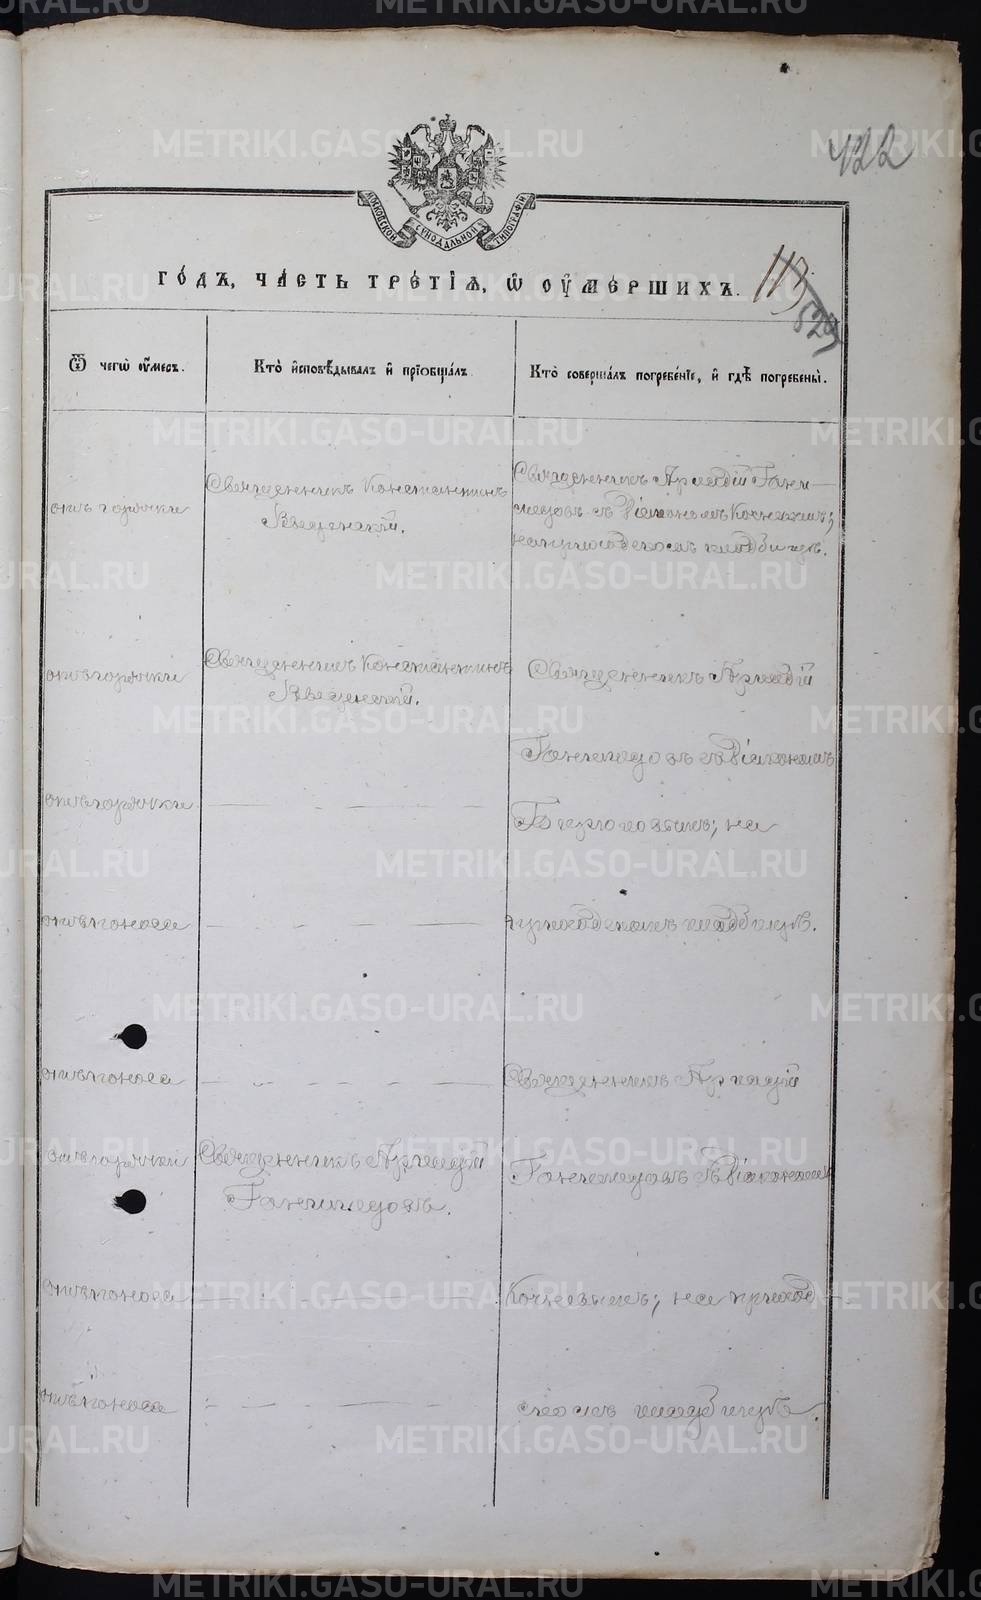 422
МОСКОВСКОЙ СѴНОДАЛЬНОЙ ТИПОГРАФІИ
ГОДЪ, ЧАСТЬ ТРЕТІЯ, Ѡ ОУМЕРШИХЪ.
117
Ѿ чегѡ оумеръ.
Кто исповѣдывалъ и пріобщалъ.
Кто совершалъ погребеніе, и гдѣ погребены.
отъ горячки
Священникъ Константинъ
Священникъ Аркадій Ганимедовъ съ Діакономъ
на приходскомъ кладбищѣ.
отъ горячки
Священникъ Константинъ
Священникъ Аркадій
Ганимедовъ съ Діакономъ
отъ горячки
на
отъ поноса
приходскомъ кладбищѣ.
отъ поноса
Священникъ Аркадій
отъ горячки
Священникъ Аркадій
Ганимедовъ.
Ганимедовъ съ Діакономъ
отъ поноса
на приход-
отъ поноса
скомъ кладбищѣ.
METRIKI.GASO-URAL.RU